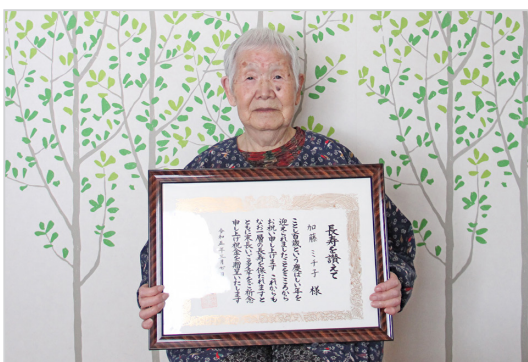 長寿を讃えて
加藤 ミチ子 様
ことし百歳という慶ばしい年を
迎えられましたことをこころから
お祝い申し上げます これからも
なお一層の長寿を保たれますと
ともに末長いご多幸をご祈念
申し上げ祝金を贈呈いたします
令和五年